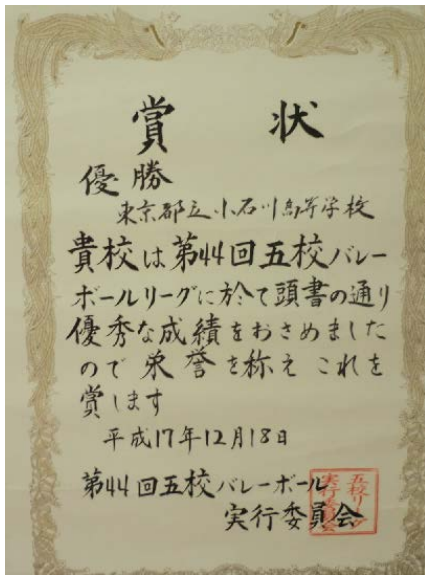 賞状
優勝
東京都立小石川高等学校
貴校は第44回五校バレー
ボールリーグに於て頭書の通り
優秀な成績をおさめました
ので栄誉を称えこれを
賞します
平成17年12月18日
第44回五校バレーボール
実行委員会
五校リーグ
実行委員会